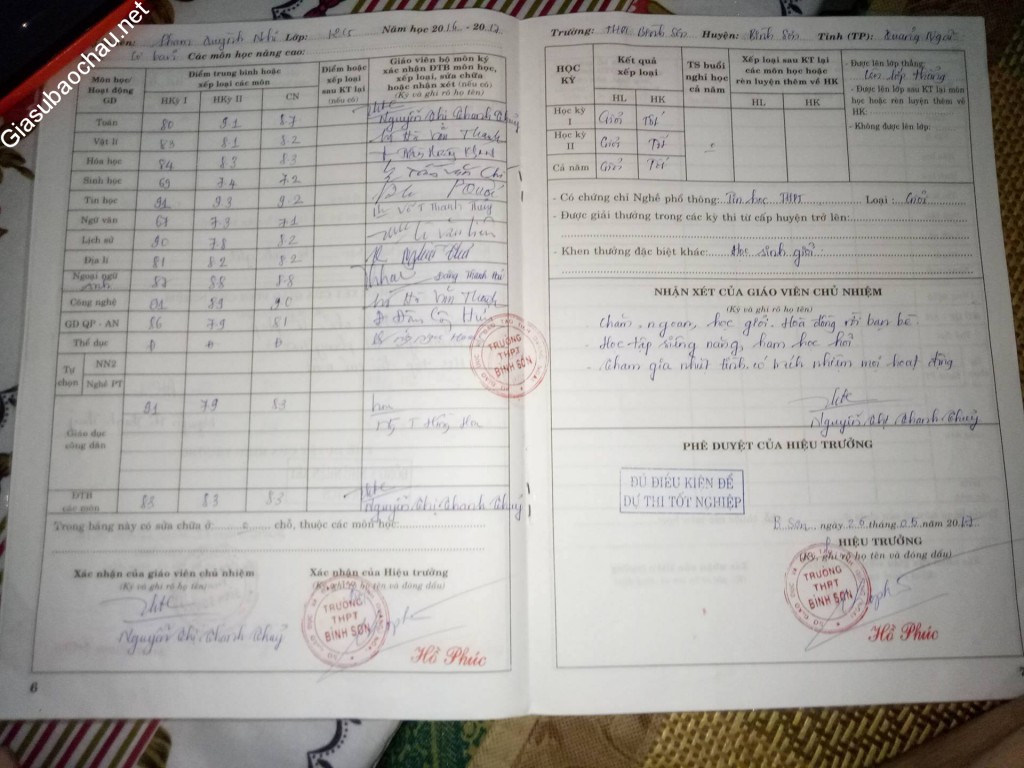 Giasubaochau.net
Phạm Quỳnh Nhi Lớp: 12C5 Năm học 2016 - 2017
Cơ bản Các môn học nâng cao:
Môn học/ Hoạt động GD
Điểm trung bình hoặc xếp loại các môn
HKỳ I HKỳ II CN
Điểm hoặc xếp loại sau KT lại (nếu có)
Giáo viên bộ môn ký xác nhận ĐTB môn học, xếp loại, sửa chữa hoặc nhận xét (nếu có)
(Ký và ghi rõ họ tên)
Toán 80 91 87 Nguyễn Thị Thanh Thuỷ
Vật lí 83 81 82 Hồ Văn Thanh
Hóa học 84 83 83
Sinh học 69 74 72 Trần Văn Chí
Tin học 91 93 92
Ngữ văn 67 73 71 Võ T Thanh Thủy
Lịch sử 90 78 82
Địa lí 81 82 82
Ngoại ngữ Anh 87 88 88
Công nghệ 91 89 90 Hồ Văn Thanh
GD QP - AN 86 79 81
Thể dục Đ Đ Đ
Tự chọn
NN2
Nghề PT
Giáo dục công dân 91 79 83
ĐTB các môn 83 83 83 Nguyễn Thị Thanh Thuỷ
Trong bảng này có sửa chữa ở: 0 chỗ, thuộc các môn học:
Xác nhận của giáo viên chủ nhiệm
(Ký và ghi rõ họ tên)
Nguyễn Thị Thanh Thuỷ
Xác nhận của Hiệu trưởng
(Ký, ghi rõ họ tên và đóng dấu)
TRƯỜNG
THPT
BÌNH SƠN
Hồ Phúc
6
TRƯỜNG
THPT
BÌNH SƠN
Trường: THPT Bình Sơn Huyện: Bình Sơn Tỉnh (TP): Quảng Ngãi
HỌC KỲ
Kết quả xếp loại
HL HK
TS buổi nghỉ học cả năm
Xếp loại sau KT lại các môn học hoặc rèn luyện thêm về HK
HL HK
- Được lên lớp thẳng:
Lên lớp thẳng
- Được lên lớp sau KT lại môn học hoặc rèn luyện thêm về HK:
- Không được lên lớp:
Học kỳ I Giỏi Tốt
Học kỳ II Giỏi Tốt
Cả năm Giỏi Tốt
- Có chứng chỉ Nghề phổ thông: Tin học THPT Loại: Giỏi
- Được giải thưởng trong các kỳ thi từ cấp huyện trở lên:
- Khen thưởng đặc biệt khác: Học sinh giỏi
NHẬN XÉT CỦA GIÁO VIÊN CHỦ NHIỆM
(Ký và ghi rõ họ tên)
- Chăm, ngoan, học giỏi. Hoà đồng với bạn bè
- Học tập siêng năng, ham học hỏi
- Tham gia nhiệt tình, có trách nhiệm mọi hoạt động
Nguyễn Thị Thanh Thuỷ
PHÊ DUYỆT CỦA HIỆU TRƯỞNG
ĐỦ ĐIỀU KIỆN ĐỂ
DỰ THI TỐT NGHIỆP
B.Sơn, ngày 25 tháng 05 năm 2017
HIỆU TRƯỞNG
(Ký, ghi rõ họ tên và đóng dấu)
TRƯỜNG
THPT
BÌNH SƠN
Hồ Phúc